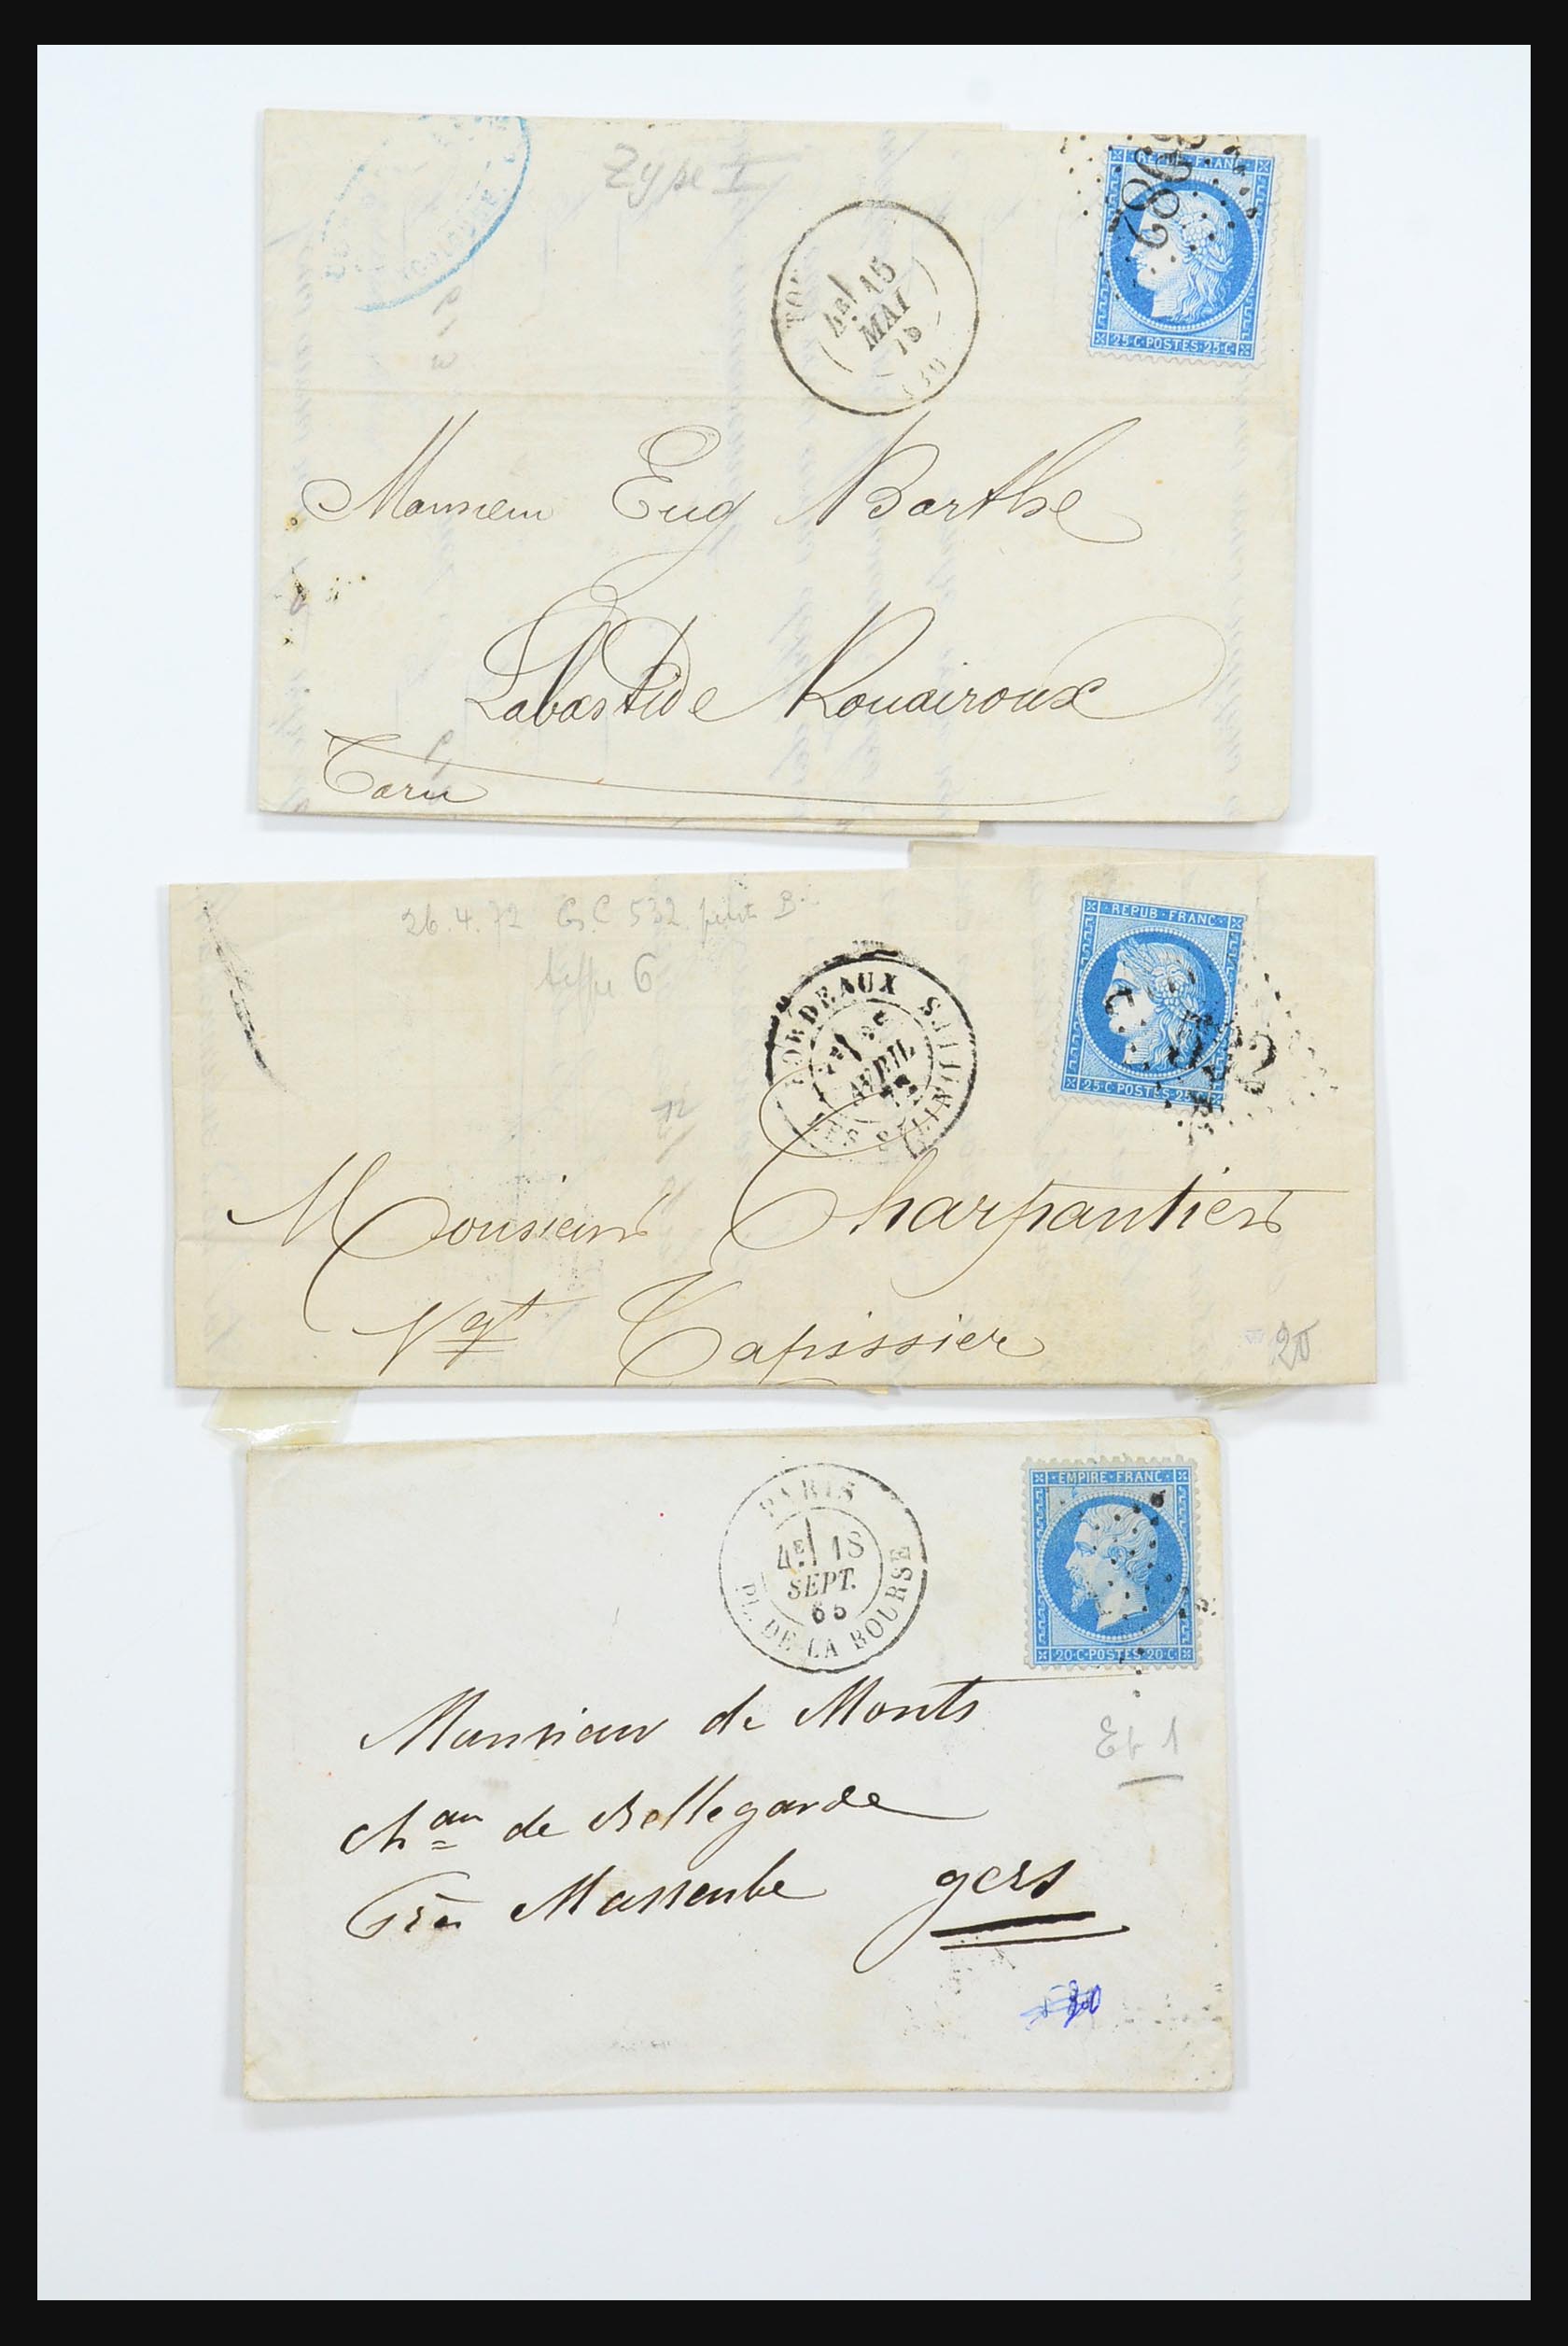 Type I
REPUB FRANC
3982
25·C·POSTES·25·C
TOU
4E 15
MAI
75
(30)
Monsieur Eug Barthe
Labastide Rouairoux
Tarn
26.4.72 G.C 532
type 6
REPUB·FRANC
532
25·C·POSTES·25·C
BORDEAUX
AVRIL
72
LES SALINIÈRES
Monsieur Charpantier
Ngt Tapissier
20
EMPIRE·FRANC
20·C·POSTES·20·C
PARIS
4E 18
SEPT.
65
PL. DE LA BOURSE
Monsieur de Monts
Chau de Bellegarde
Près Masseube Gers
Et 1